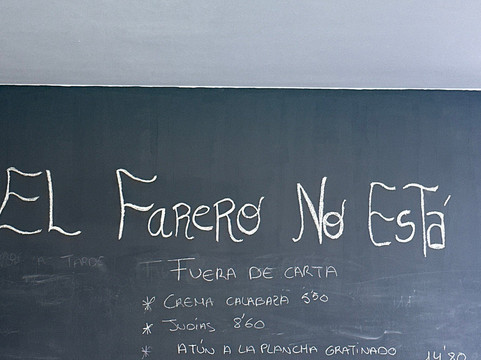 EL FARERO NO ESTÁ
FUERA DE CARTA
* CREMA CALABAZA 5'50
* JUDÍAS 8'60
* ATÚN A LA PLANCHA GRATINADO 14'80